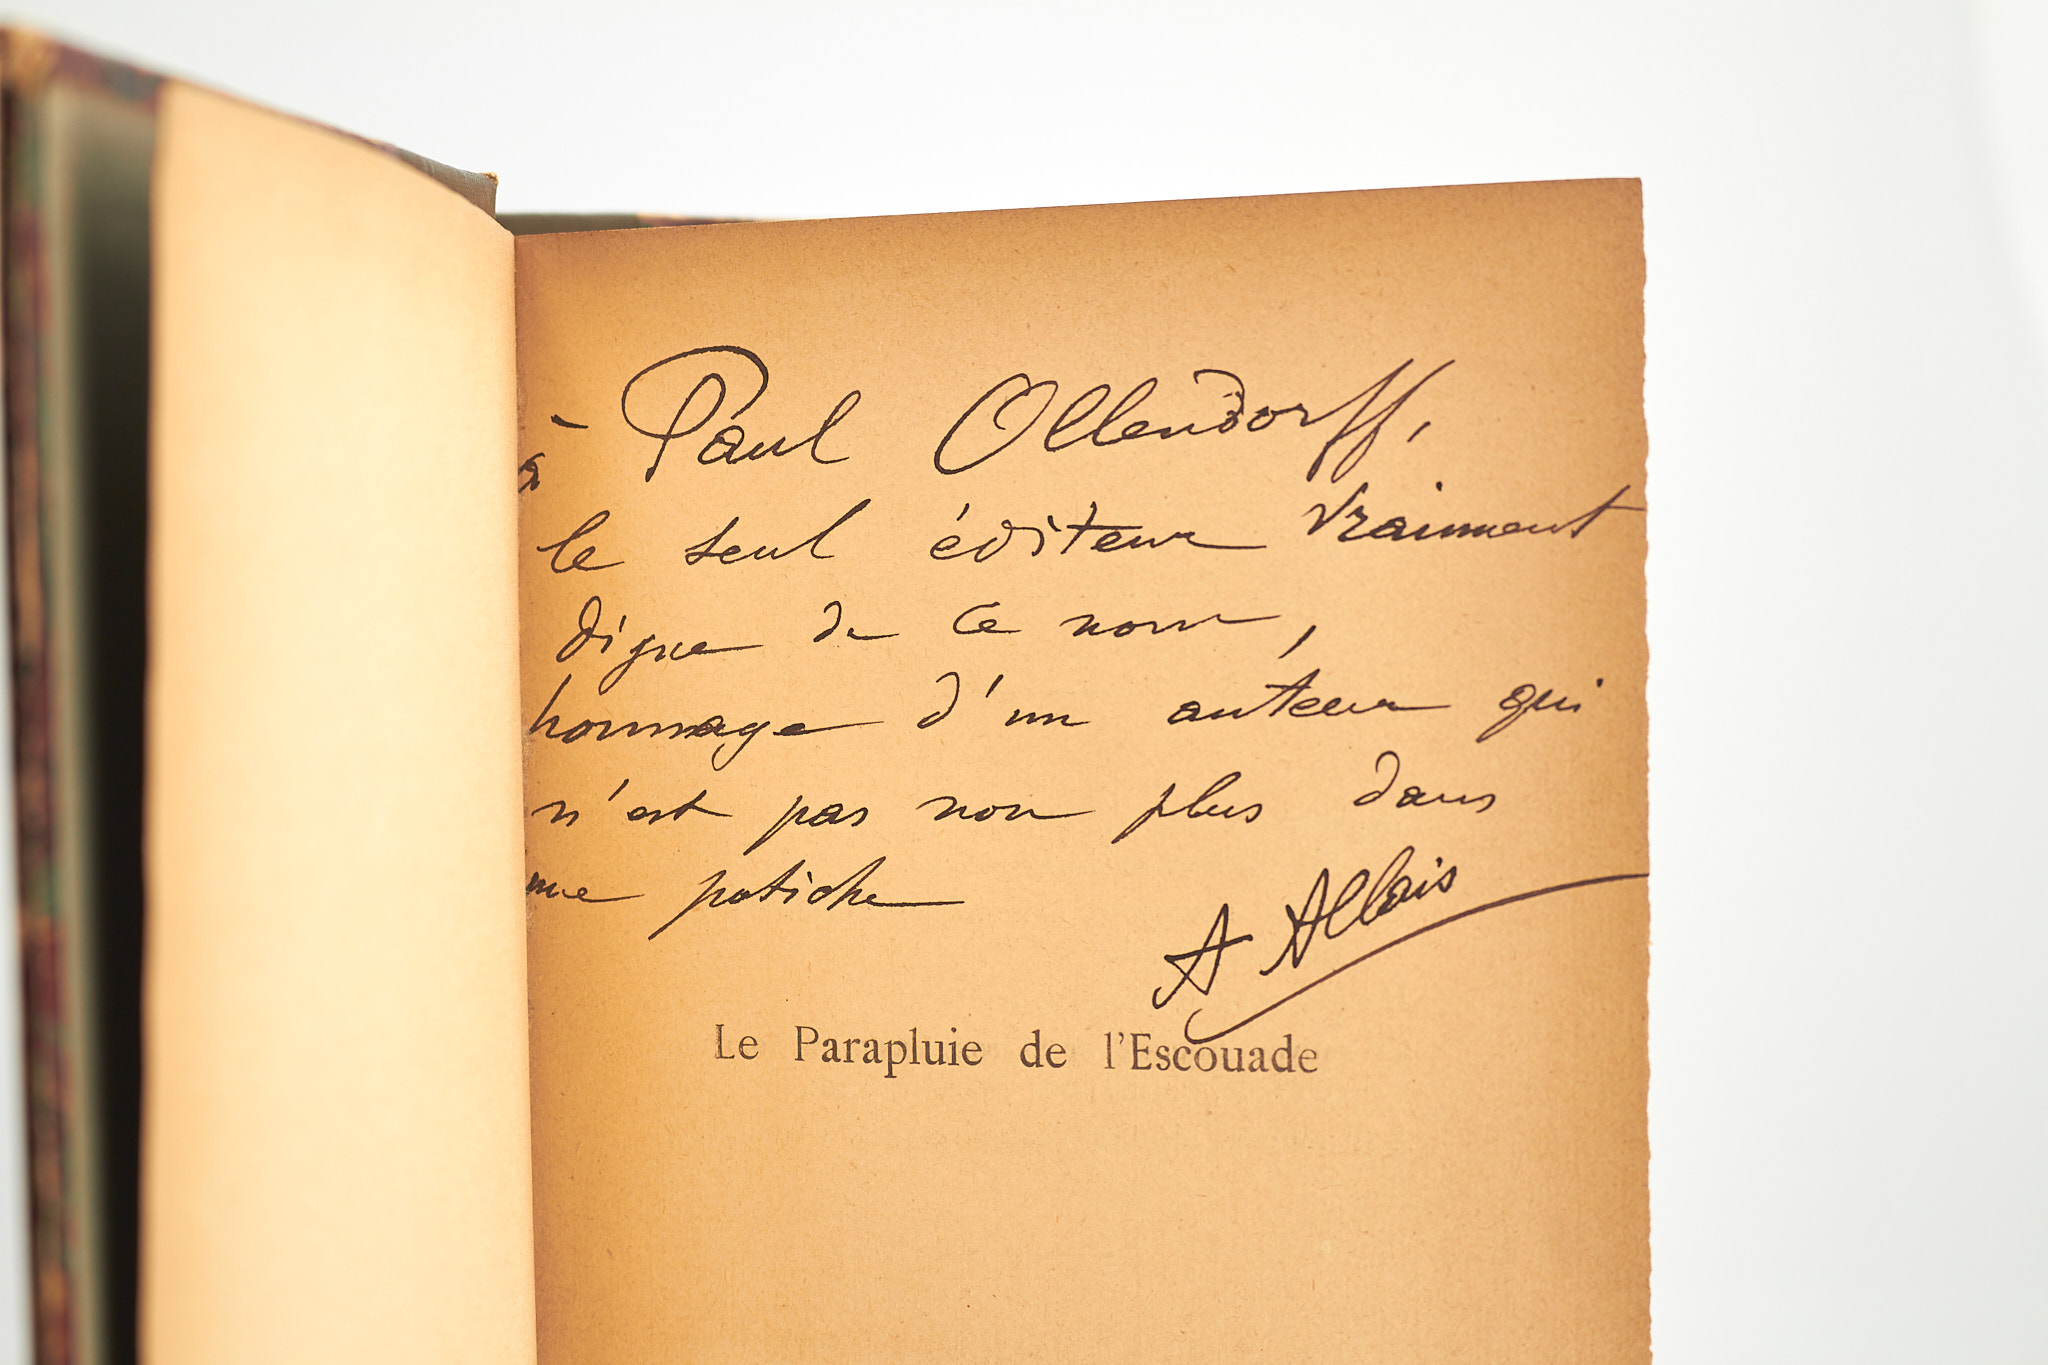 à Paul Ollendorff,
le seul éditeur vraiment
digne de ce nom,
hommage d'un auteur qui
n'est pas non plus dans
une potiche
A Allais
Le Parapluie de l'Escouade